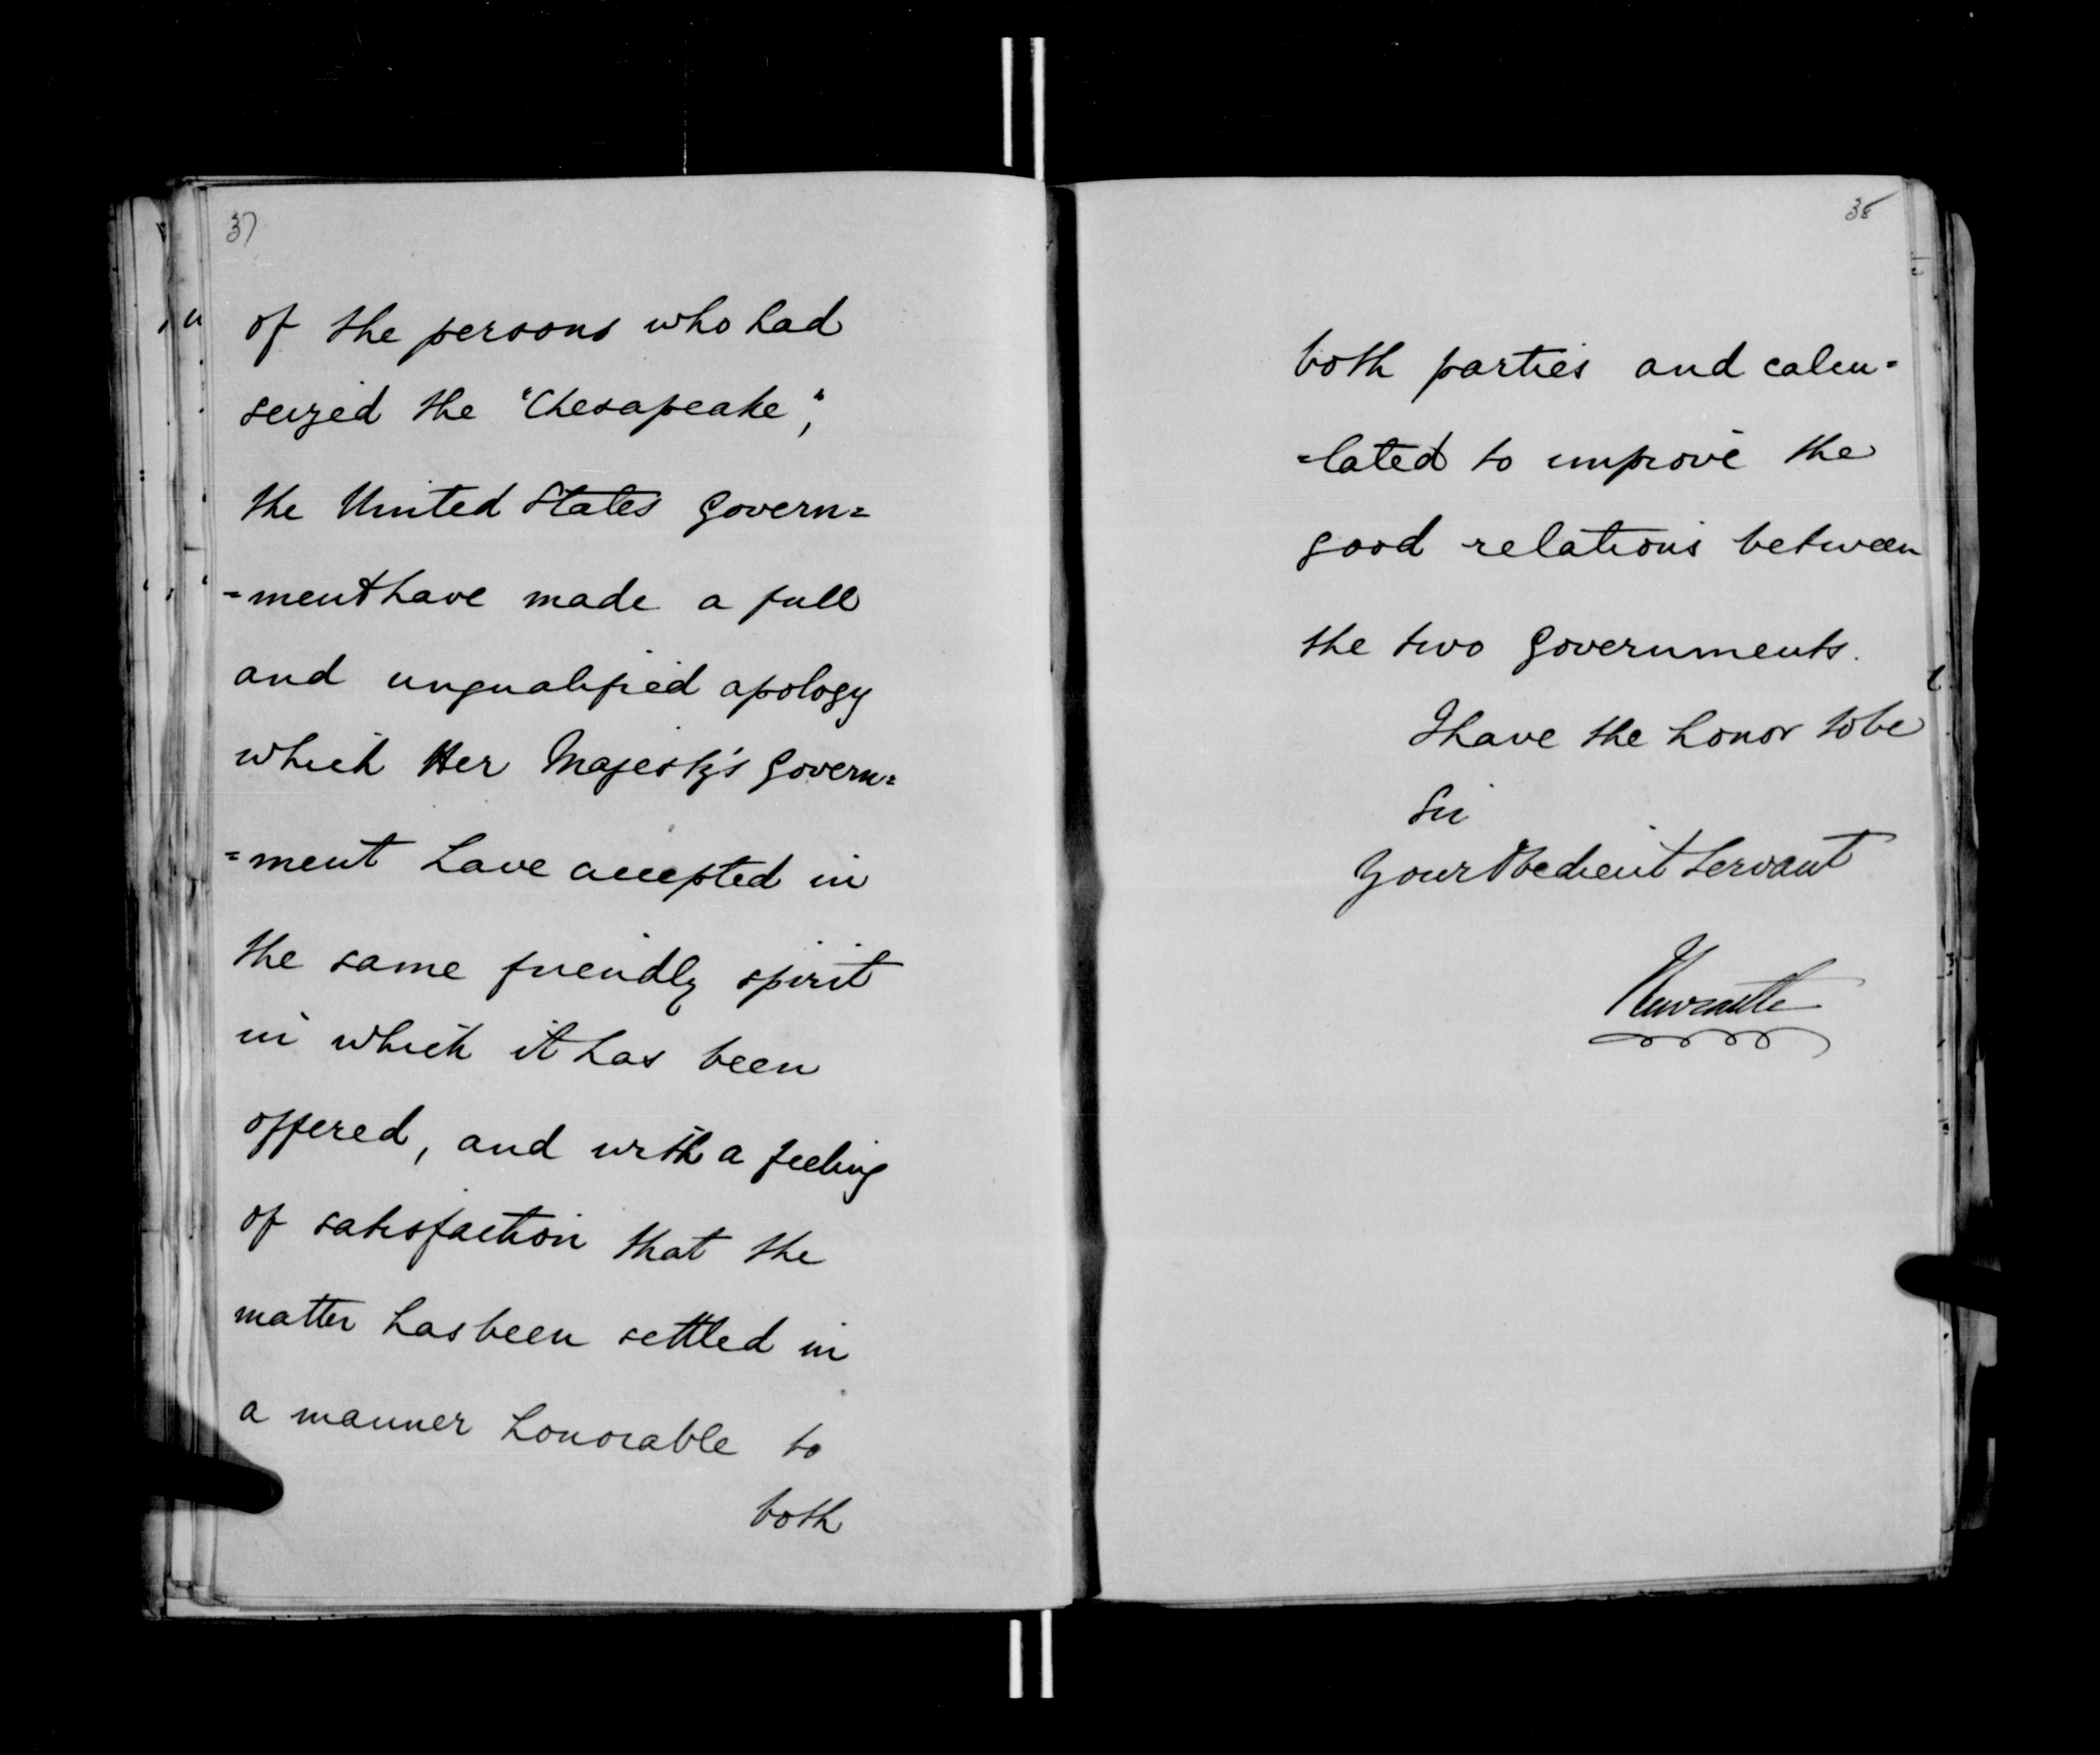 37
of the persons who had
seized the "Chesapeake",
the United States Govern=
=ment have made a full
and unqualified apology
which Her Majesty's Govern=
=ment have accepted in
the same friendly spirit
in which it has been
offered, and with a feeling
of satisfaction that the
matter has been settled in
a manner honorable to
both
38
both parties and calcu=
=lated to improve the
good relations between
the two Governments.
I have the honor to be
Sir
Your Obedient Servant
Newcastle